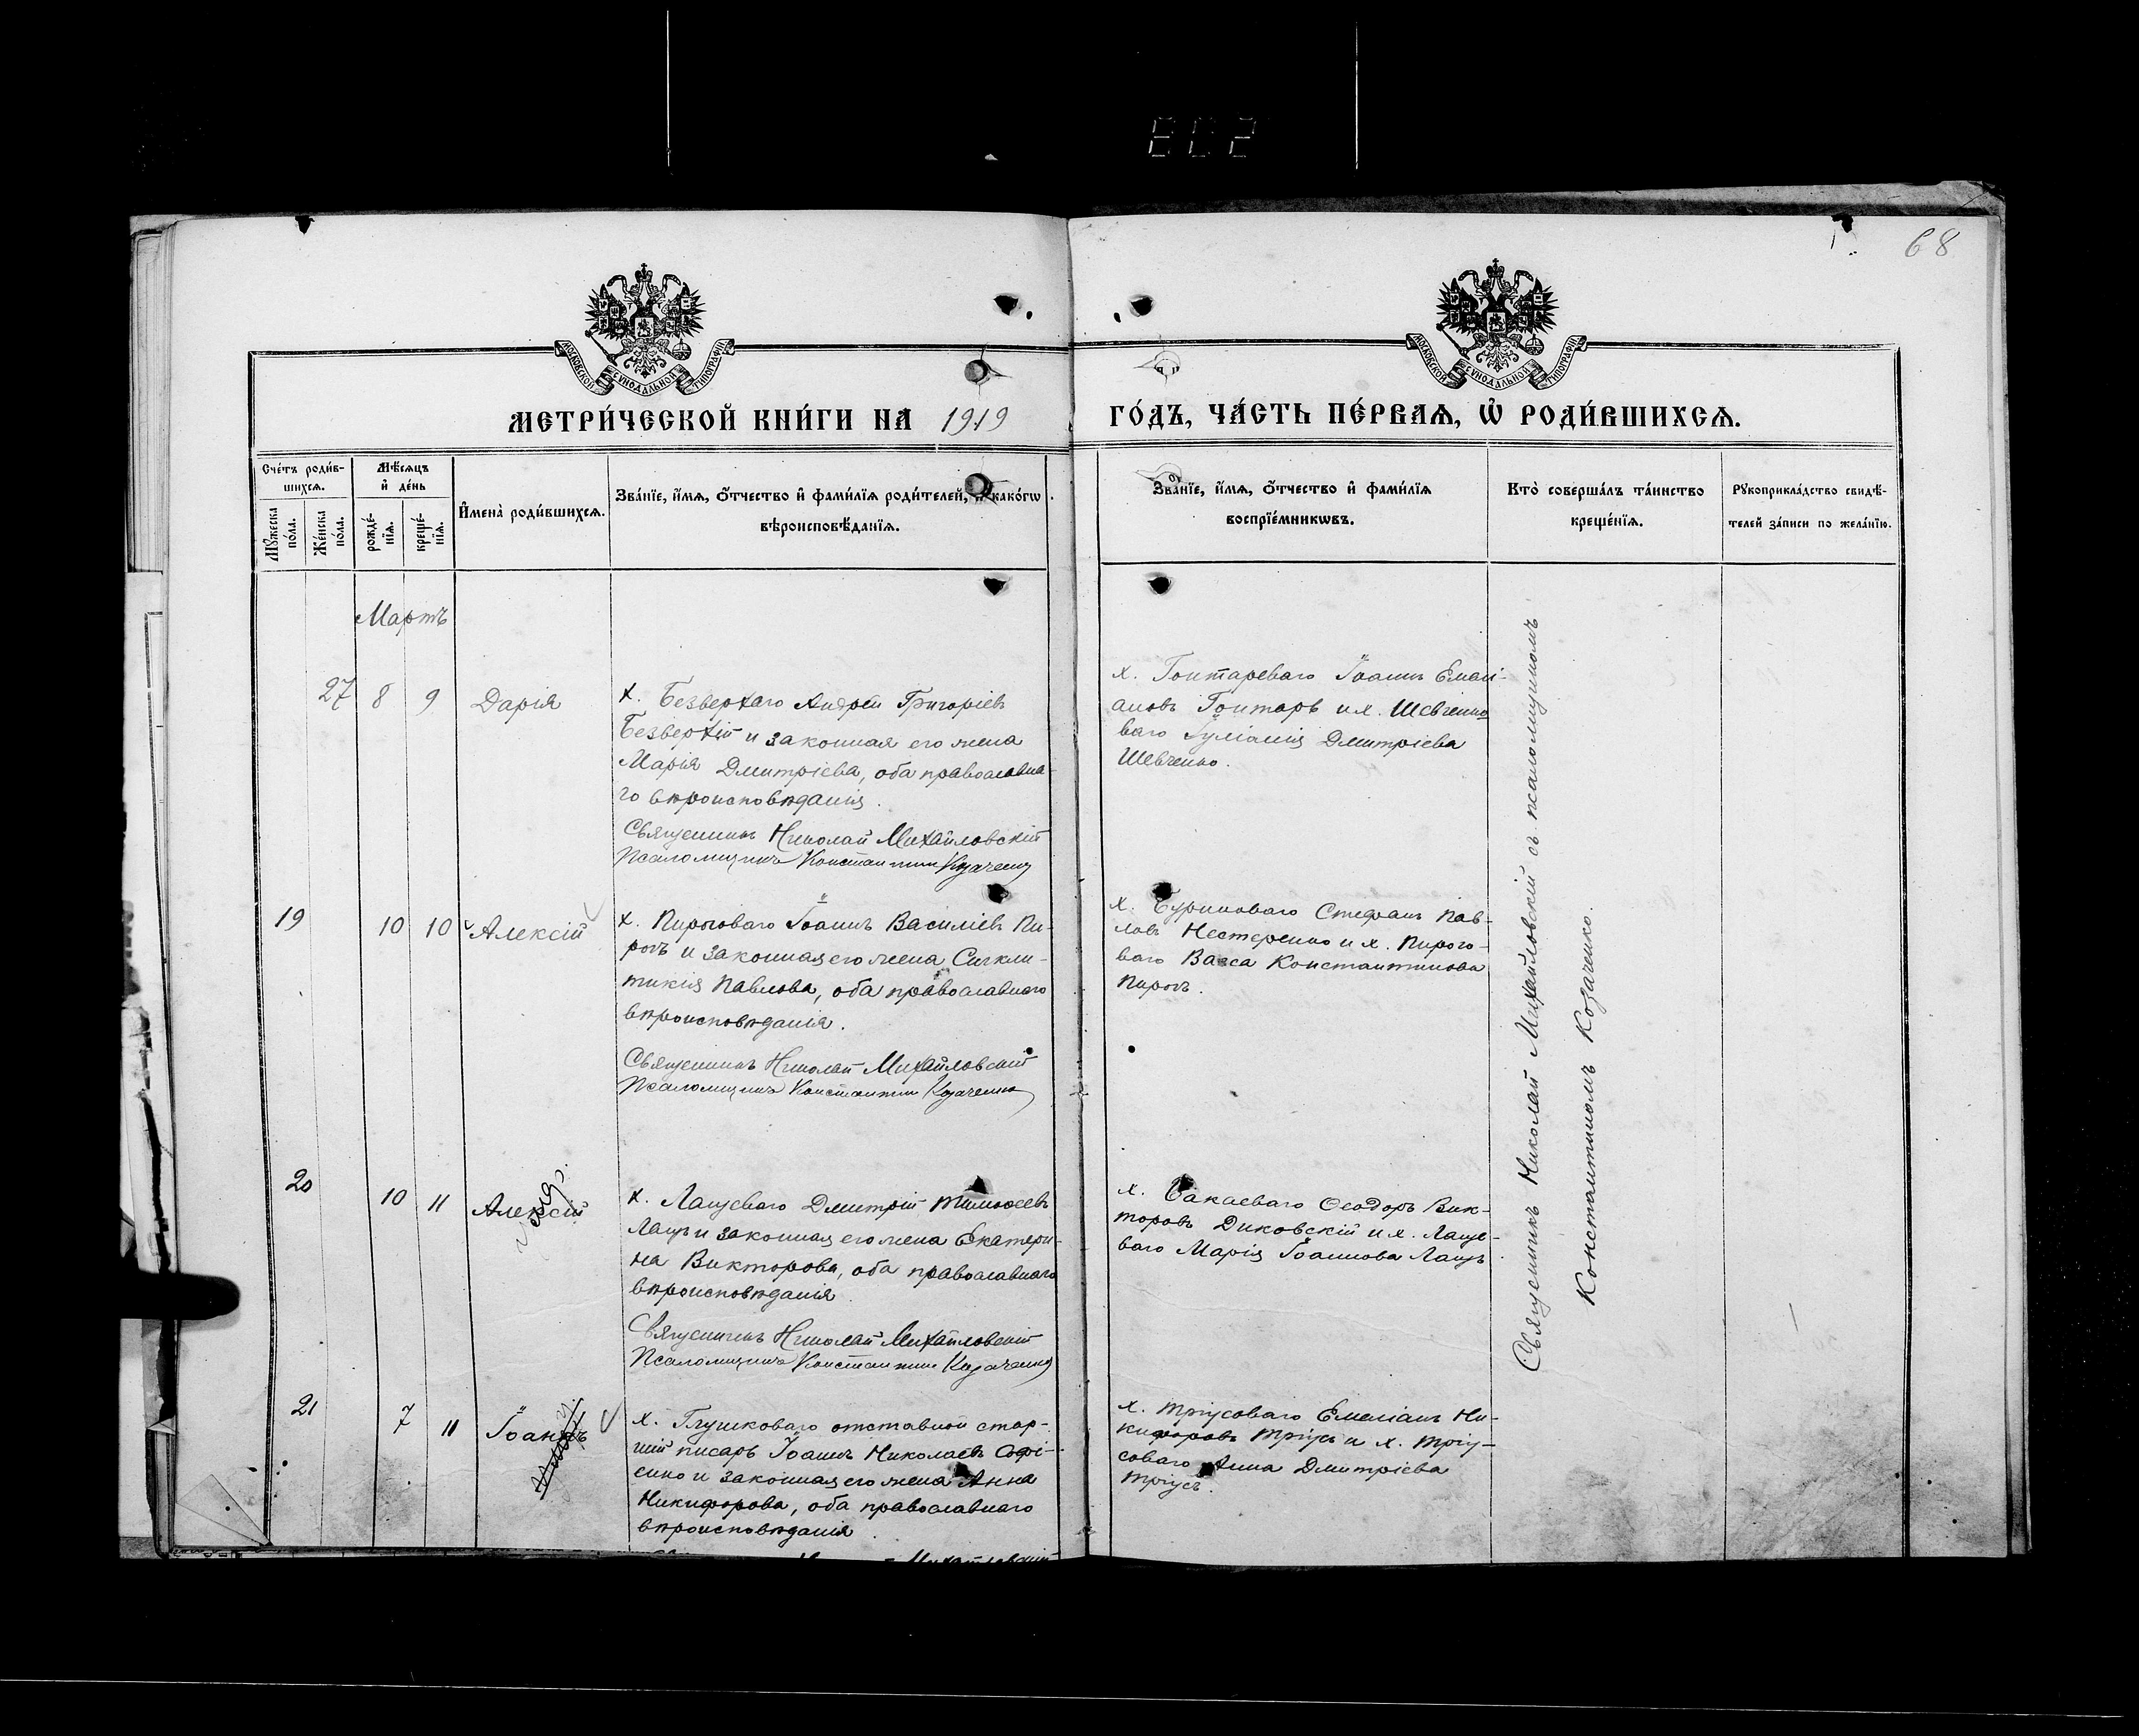 802
68
МОСКОВСКОЙ СУНОДАЛЬНОЙ ТИПОГРАФІИ
МОСКОВСКОЙ СУНОДАЛЬНОЙ ТИПОГРАФІИ
МЕТРИ́ЧЕСКОЙ КНИ́ГИ НА 1919
ГО́ДЪ, ЧА́СТЬ ПЕ́РВАѦ, Ѡ҆ РОДИ́ВШИХСѦ.
Сче́тъ роди́в-
шихсѧ.
Мѹ́жеска
по́ла.
Же́нска
по́ла.
Мѣ́сѧцъ
и҆ де́нь
рожде́-
нїѧ.
креще́-
нїѧ.
И҆мена̀ роди́вшихсѧ.
Зва́нїе, и҆́мѧ, ѻ҆́тчество и҆ фами́лїѧ роди́телей, и҆ како́гѡ
вѣроисповѣ́данїѧ.
Зва́нїе, и҆́мѧ, ѻ҆́тчество и҆ фами́лїѧ
воспрїе́мникѡвъ.
Кто̀ соверша́лъ та́инство
креще́нїѧ.
Рѹкоприкла́дство свидѣ́-
телей за́писи по жела́нїю.
Мартъ
27 8 9 Дарія
х. Безверхаго Андрей Григоріевъ
Безверхій и законная его жена
Марія Дмитріева, оба православна-
го вѣроисповѣданія.
Священникъ Николай Михайловскій
Псаломщикъ Константинъ Козаченко
х. Гонтареваго Іоаннъ Емелі-
ановъ Гонтарь и х. Шевченко
ваго Іуліанія Дмитріева
Шевченко.
19 10 10 Алексій
х. Пироговаго Іоаннъ Василіевъ Пи-
рогъ и законная его жена Сигкли-
тикія Павлова, оба православнаго
вѣроисповѣданія.
Священникъ Николай Михайловскій
Псаломщикъ Константинъ Козаченко
х. Буриноваго Стефанъ Пав-
ловъ Нестеренко и х. Пирого-
ваго Васса Константинова
Пирогъ.
20 10 11 Алексій
х. Лащеваго Дмитрій Тимоѳеевъ
Лащъ и законная его жена Екатери-
на Викторова, оба православнаго
вѣроисповѣданія.
Священникъ Николай Михайловскій
Псаломщикъ Константинъ Козаченко
х. Бакаеваго Ѳеодоръ Вик-
торовъ Диковскій и х. Лаще-
ваго Марія Іоаннова Лащъ
21 7 11 Іоаннъ
х. Глушковаго отставной стар-
шій писарь Іоаннъ Николаевъ Софі-
енко и законная его жена Анна
Никифорова, оба православнаго
вѣроисповѣданія.
х. Тріусоваго Емеліанъ Ни-
кифоровъ Тріусъ и х. Тріу-
соваго Анна Дмитріева
Тріусъ.
Священникъ Николай Михайловскій съ псаломщикомъ
Константиномъ Козаченко.